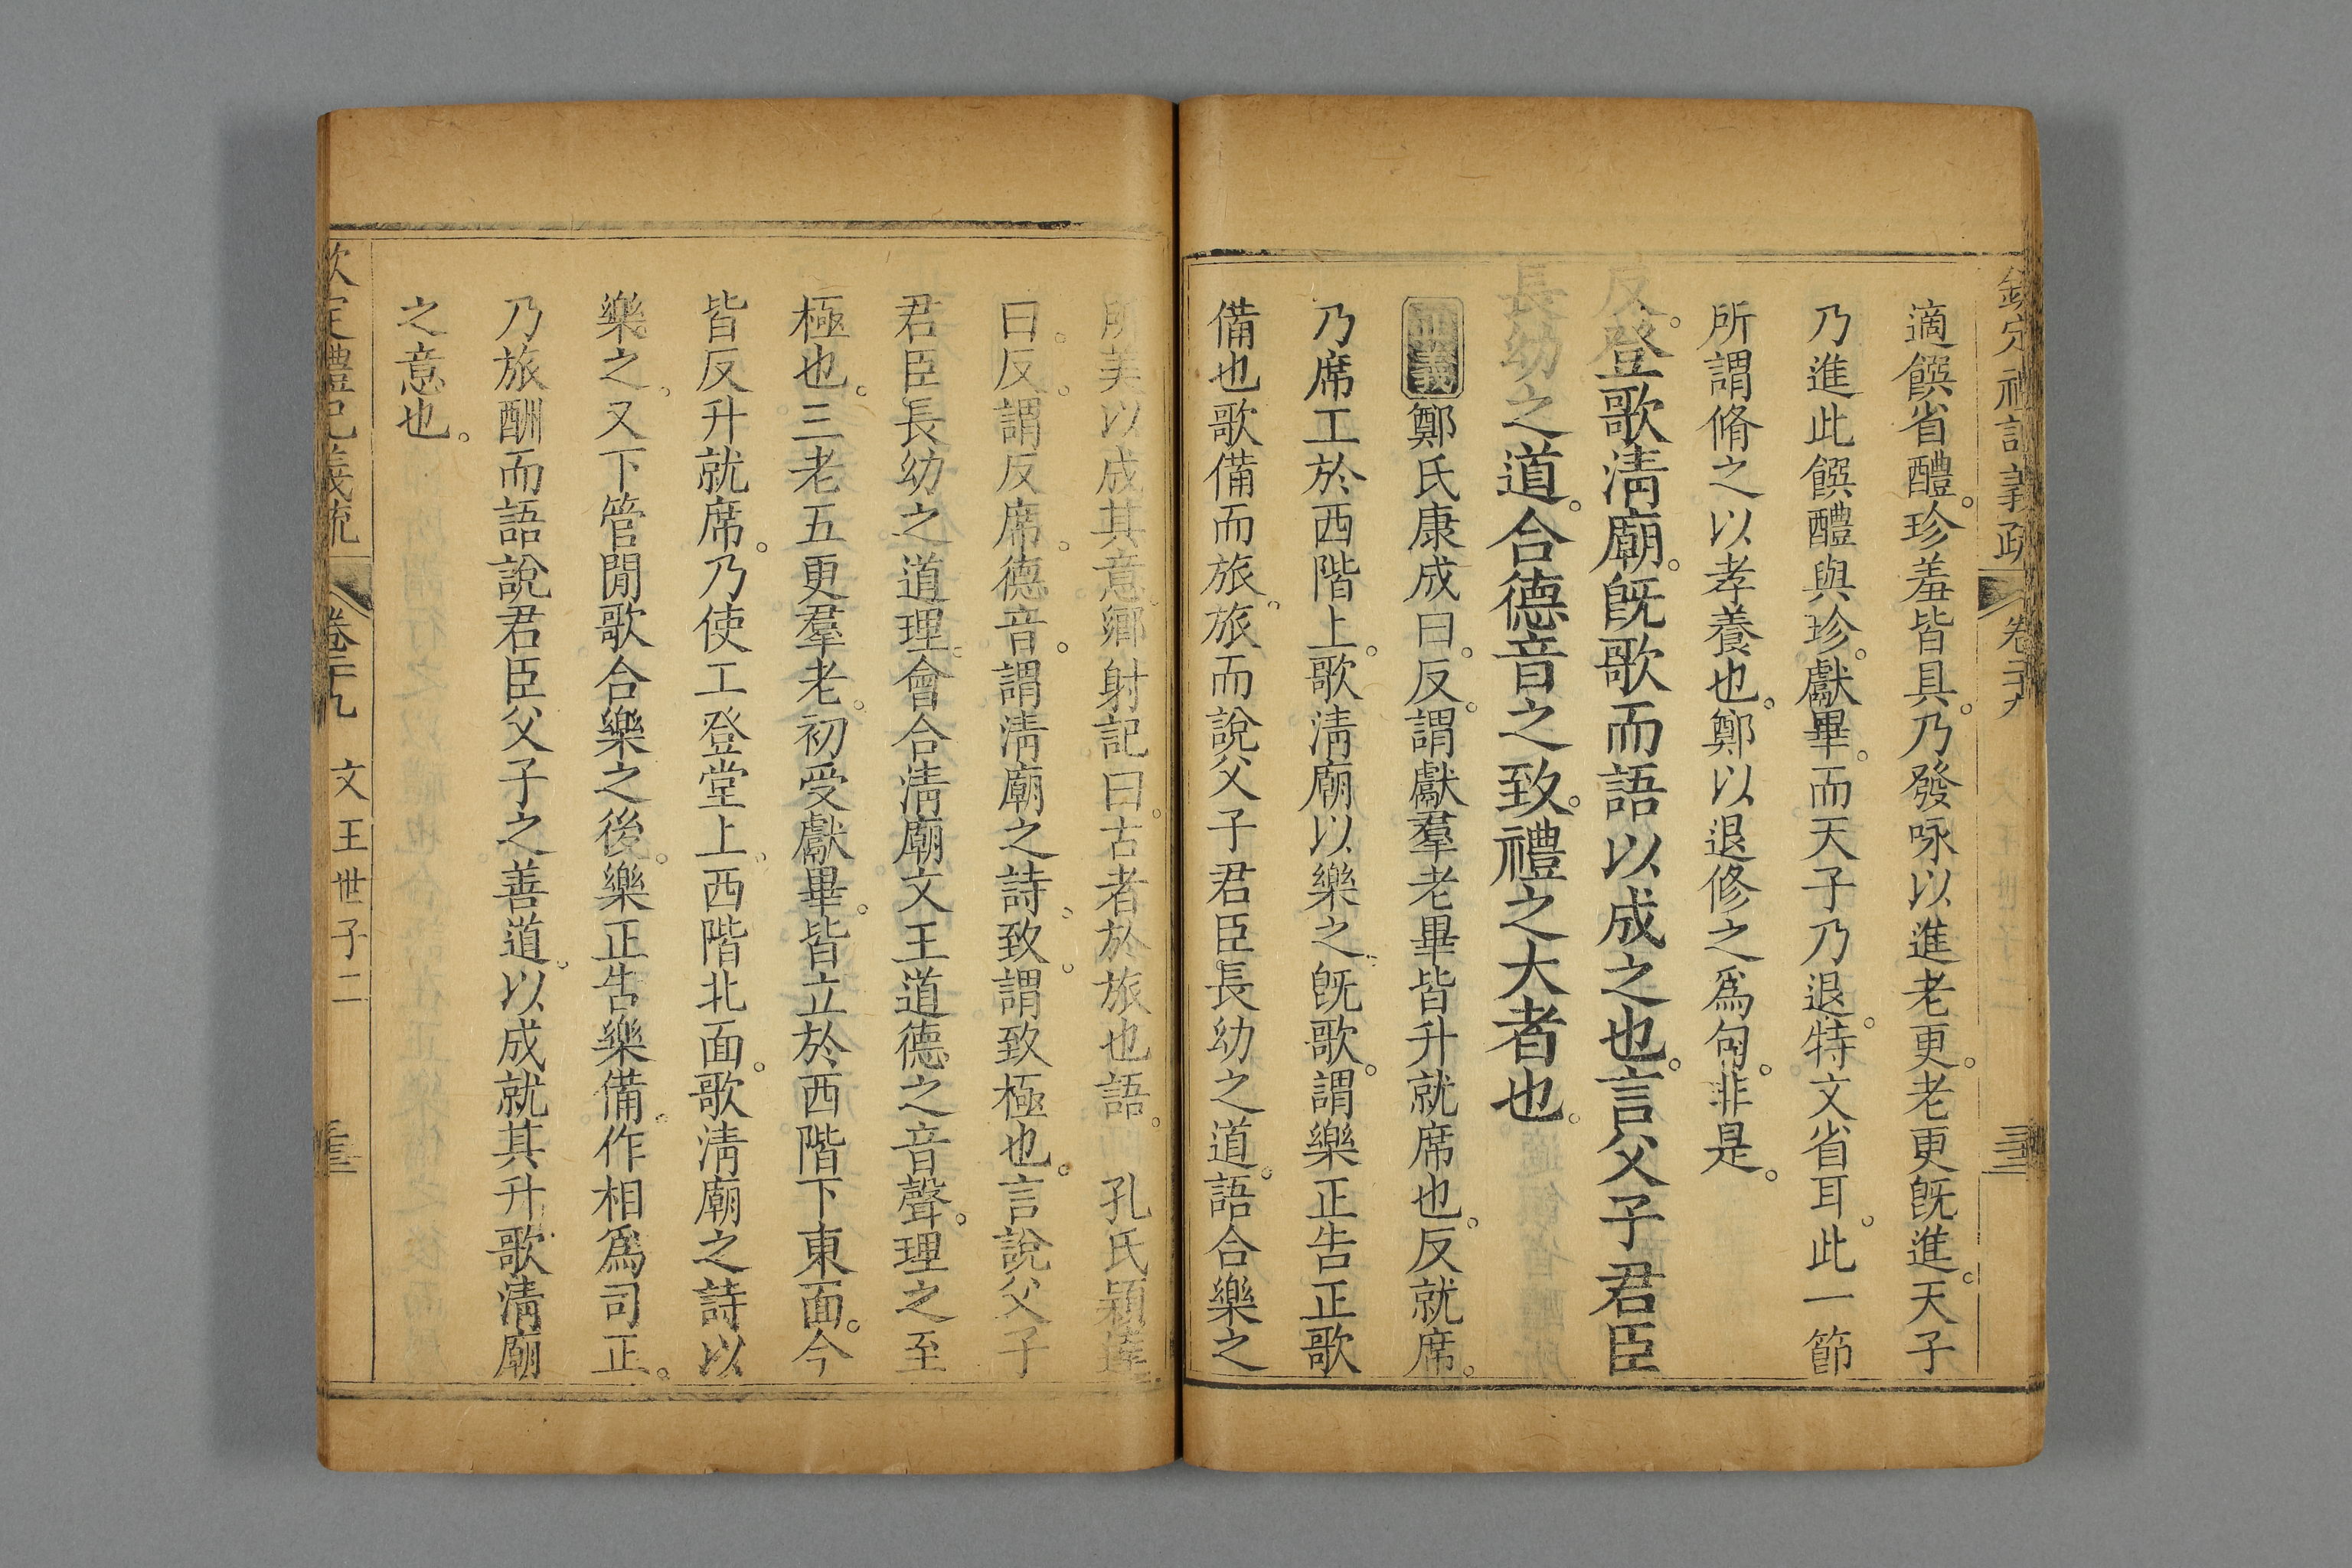 欽定禮記義疏 卷二十九
適饌省醴。珍羞皆具。乃發咏以進老更。老更旣進。天子
乃進此饌醴與珍。獻畢。而天子乃退。特文省耳。此一節
所謂脩之以孝養也。鄭以退修之爲句。非是。
反。登歌淸廟。旣歌而語以成之也。言父子君臣
長幼之道。合德音之致。禮之大者也。
正義鄭氏康成曰。反。謂獻羣老畢皆升就席也。反就席。
乃席工於西階上。歌淸廟以樂之。旣歌。謂樂正告正歌
備也歌備而旅。旅而說父子君臣長幼之道。語合樂之
所美以成其意。鄉射記曰。古者於旅也語。 孔氏穎達
曰。反。謂反席。德音。謂淸廟之詩。致。謂致極也。言說父子
君臣長幼之道理。會合淸廟文王道德之音聲。理之至
極也。三老五更羣老。初受獻畢。皆立於西階下東面。今
皆反升就席。乃使工登堂上。西階北面。歌淸廟之詩以
樂之。又下管閒歌合樂之後。樂正告樂備。作相爲司正。
乃旅酬而語說君臣父子之善道。以成就其升歌淸廟
之意也。
欽定禮記義疏 卷二十九 文王世子二